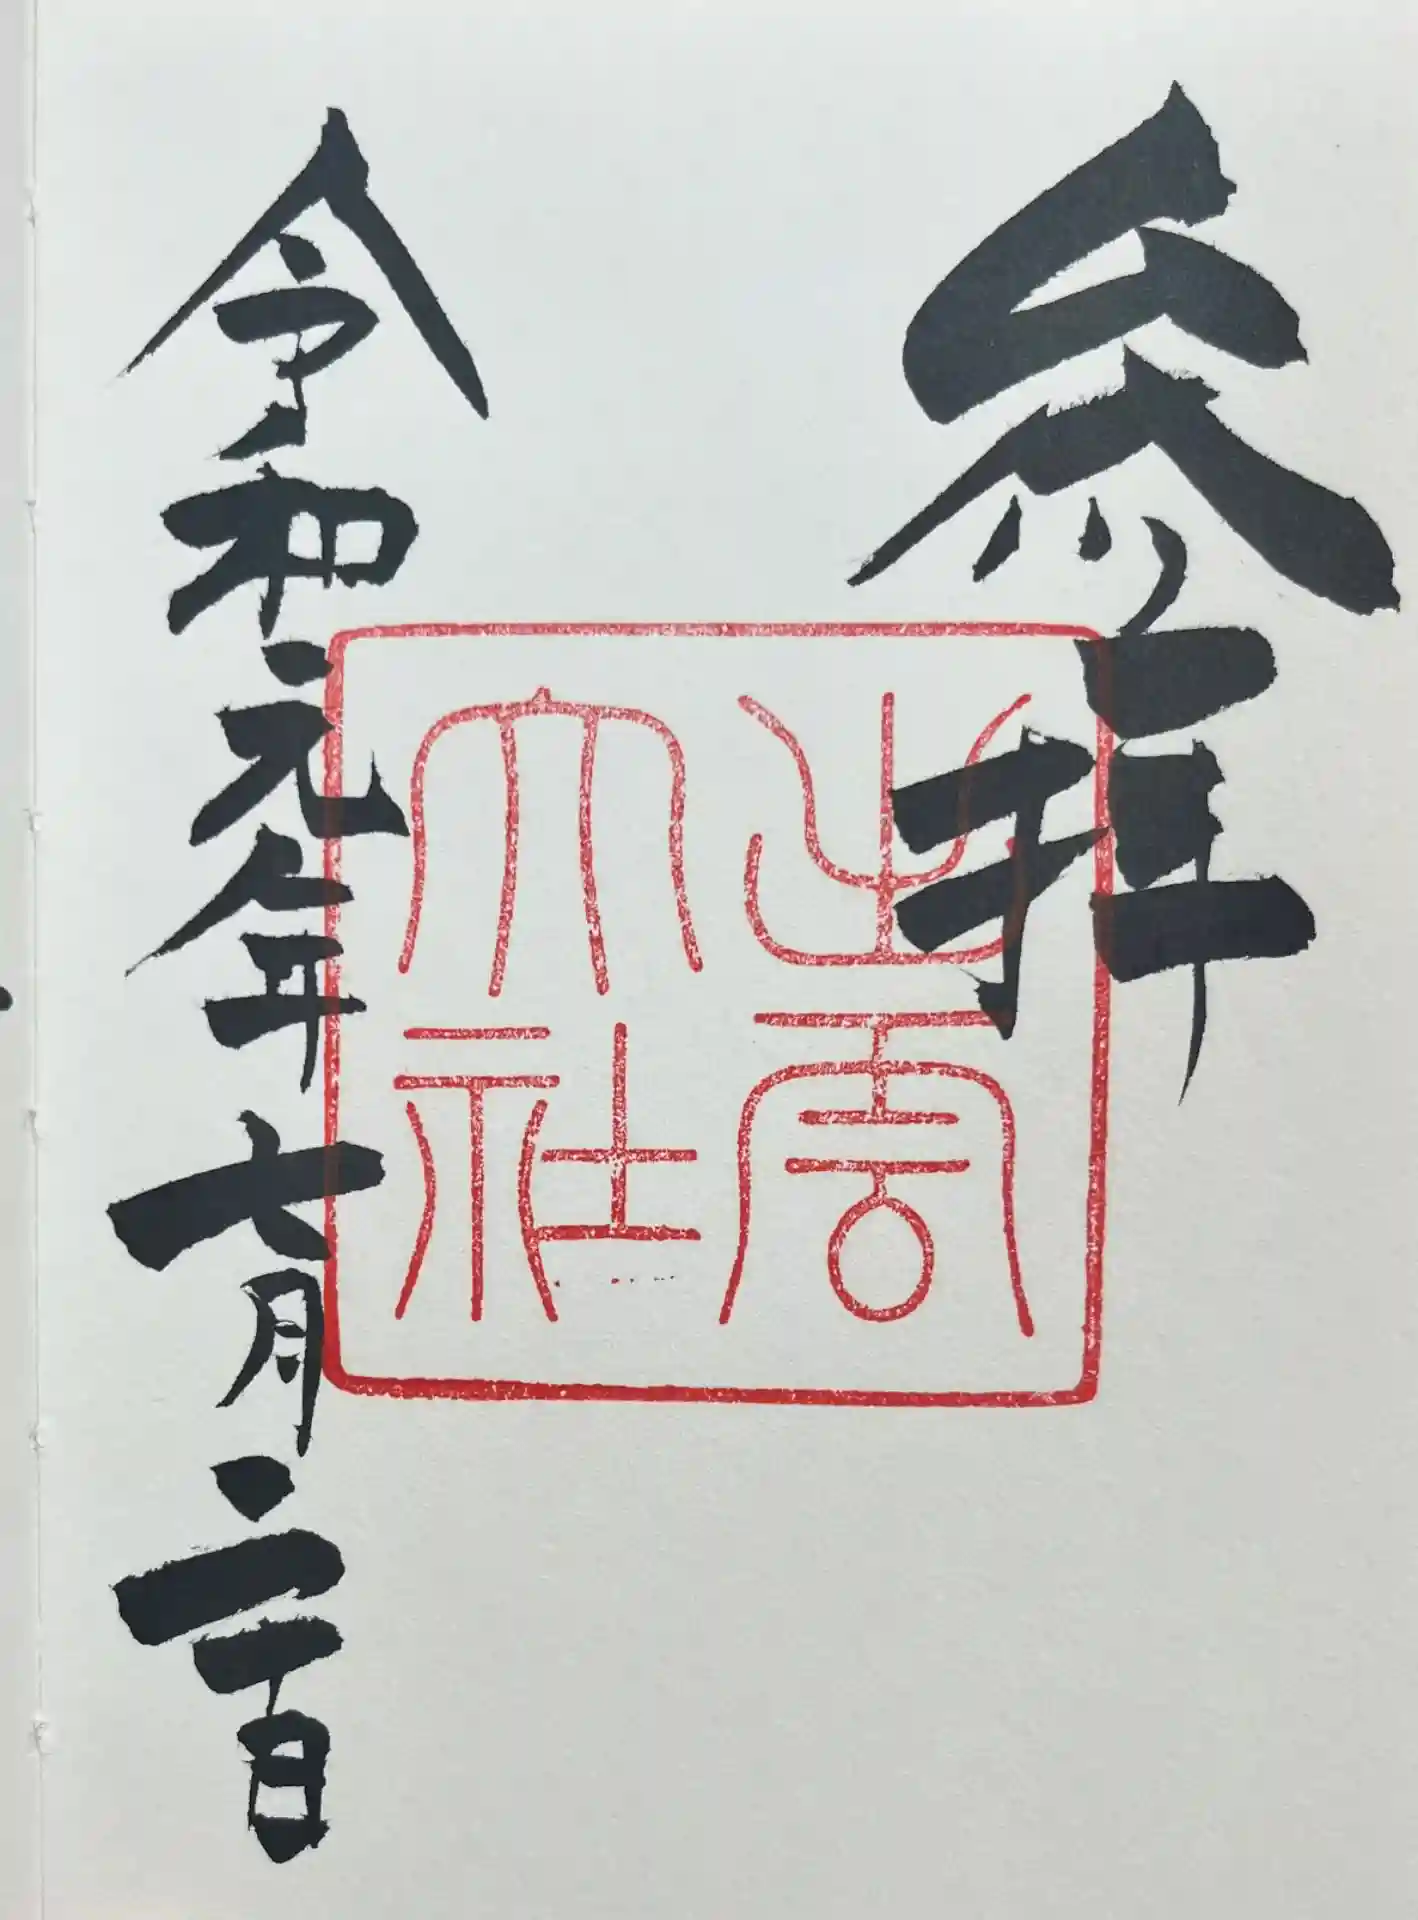 参拝
出雲大社
令和元年七月二一日